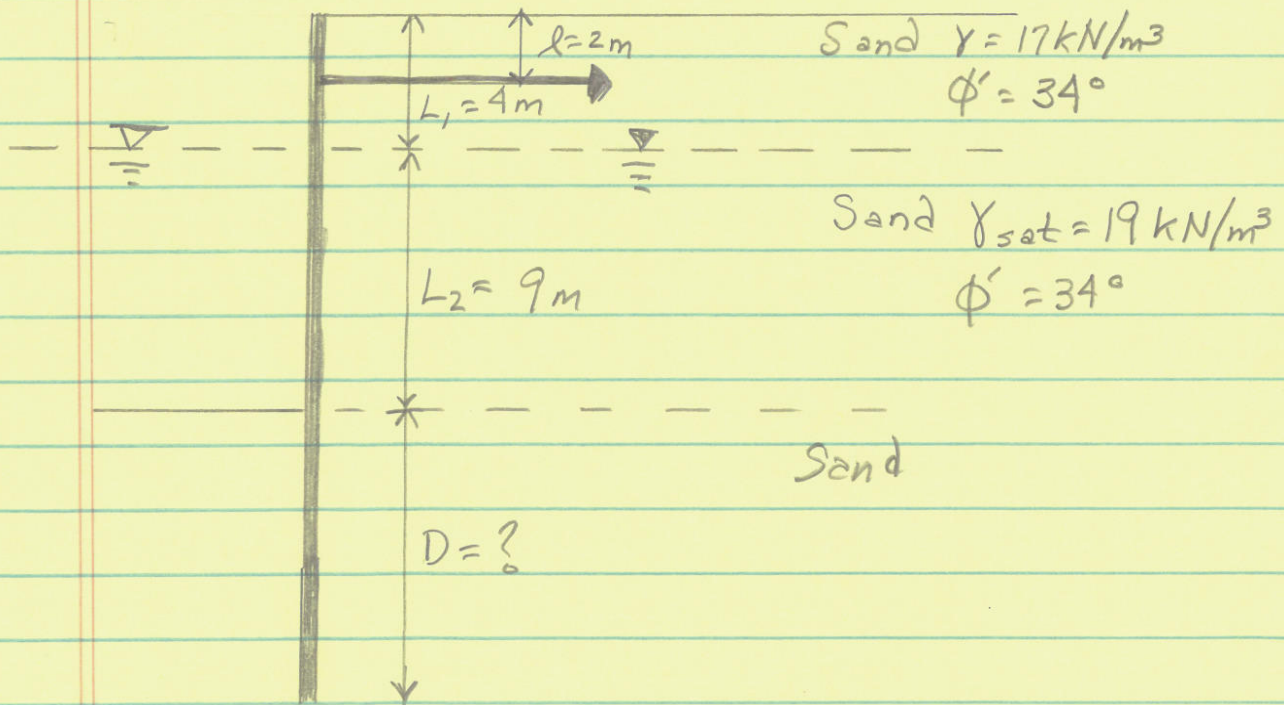 l=2m
L₁ = 4m
Sand γ = 17 kN/m³
φ′ = 34°
Sand γsat = 19 kN/m³
φ′ = 34°
L₂ = 9m
Sand
D = ?